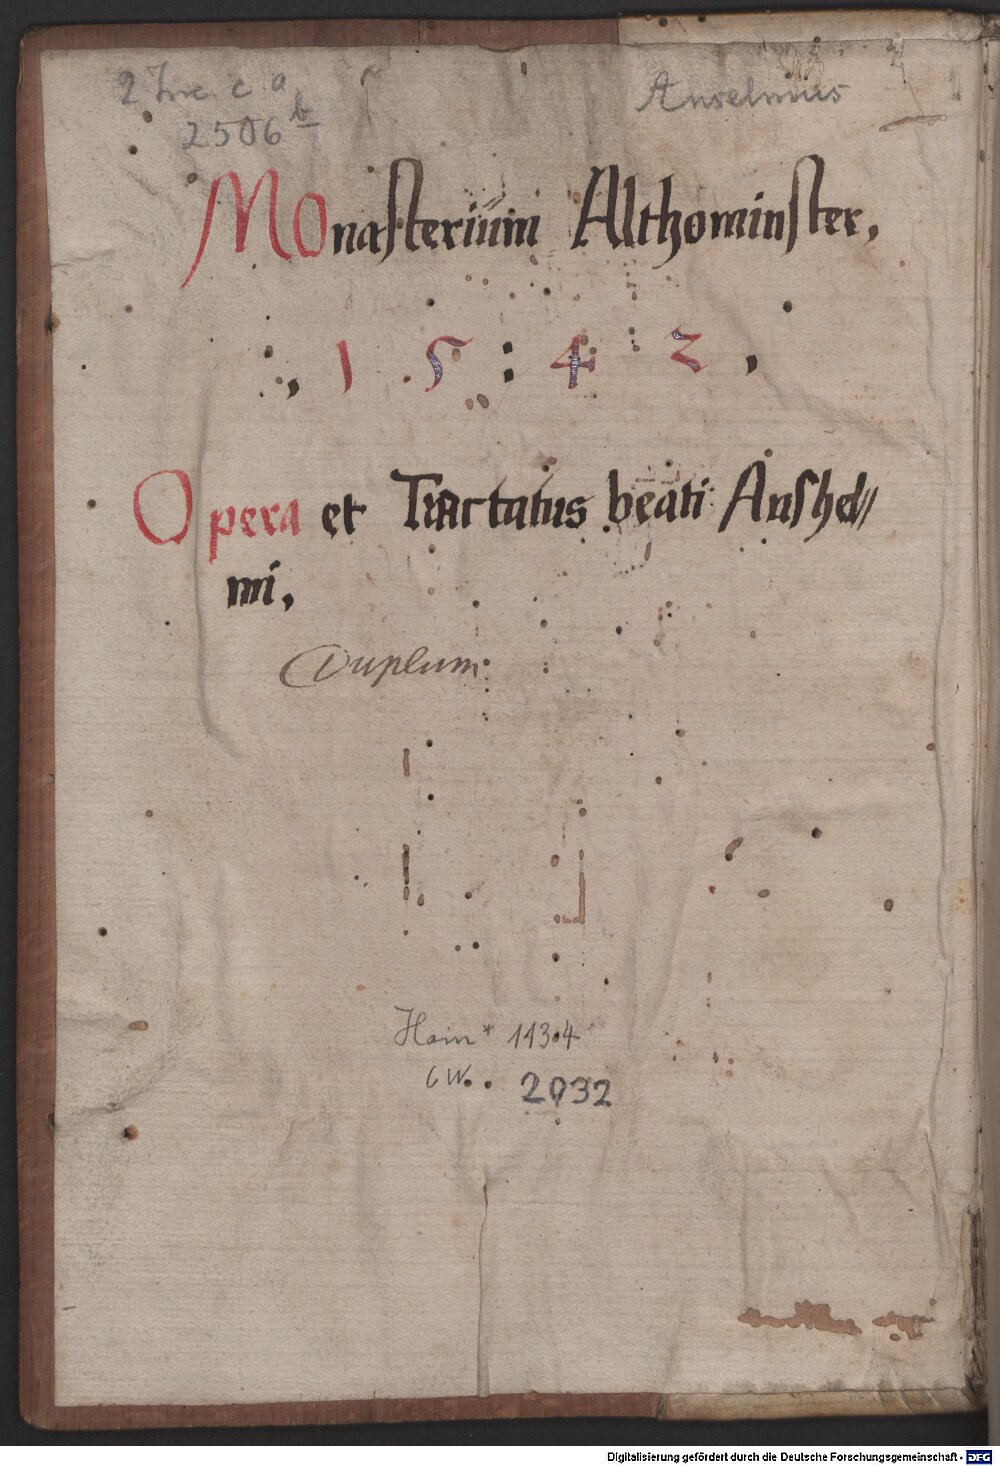 2 Inc. c. a.
2506 b
Anselmus
Monasterium Althominster,
, 1 5 : 4 2 ,
Opera et Tractatus beati Anshel//
mi,
Duplum
Hain* 1134
GW. 2032
Digitalisierung gefördert durch die Deutsche Forschungsgemeinschaft - DFG